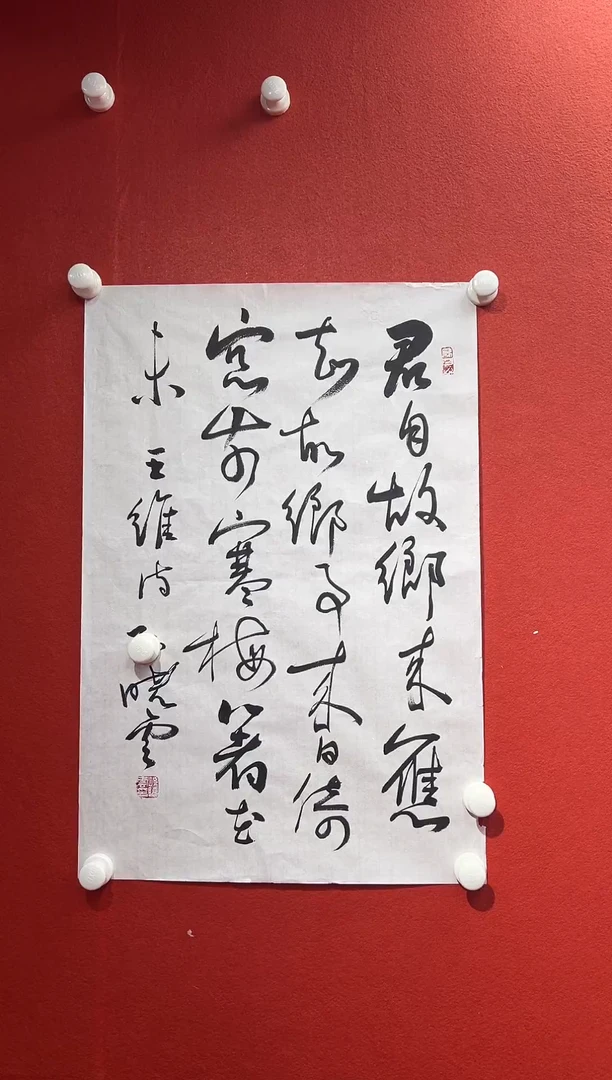 君自故鄉来應
知故鄉事来日倚
窓前寒梅著花
未 王維诗 曉雲